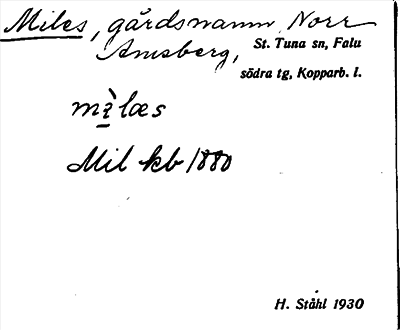 Miles, gårdsnamn, Norr
Amsberg,
St. Tuna sn, Falu
södra tg, Kopparb. l.
mì̠læs
Mil kb 1880
H. Ståhl 1930